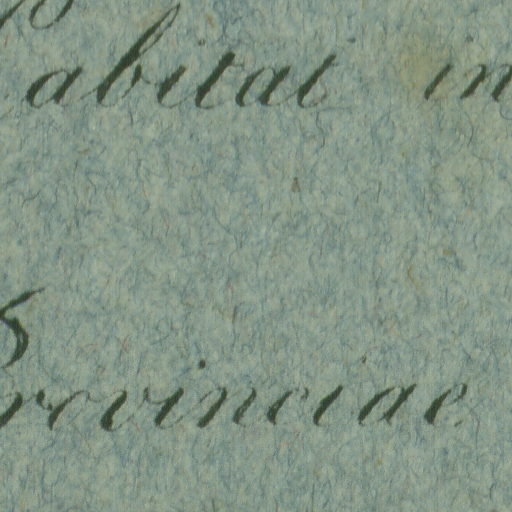 abitat in
rovinciae